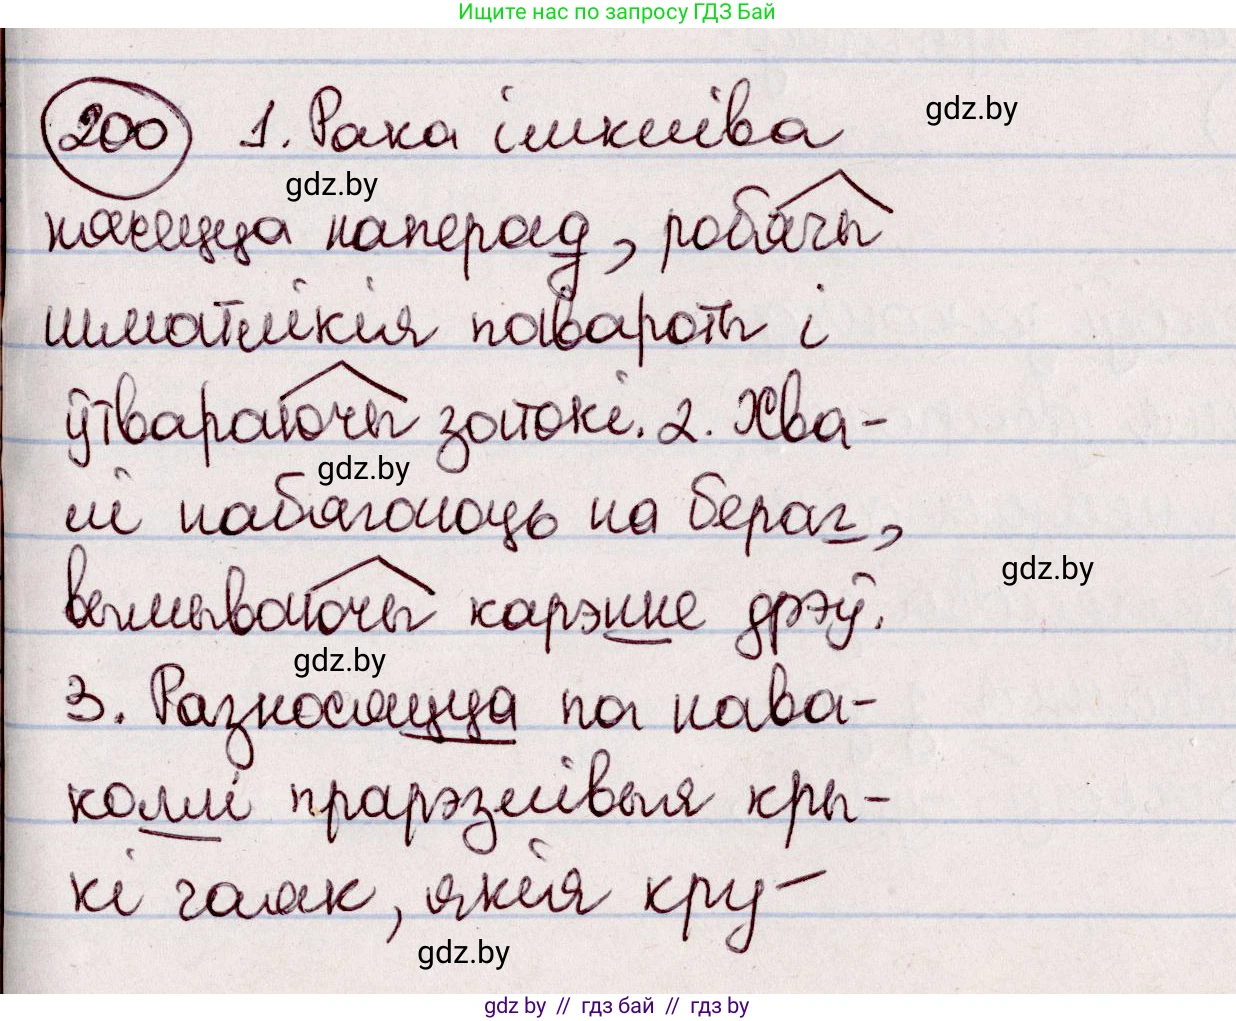 Ищите нас по запросу ГДЗ Бай
200 1. Рака імкліва
gdz.by
gdz.by
нясецца наперад, робячы
шматлікія павароты і
ўтвараючы затокі. 2. Хва-
gdz.by
лі набягаюць на бераг,
gdz.by
вымываючы карэнне дрэў.
gdz.by
3. Разносяцца па нава-
коллі прарэзлівыя кры-
кі чаек, якія кру-
gdz.by
gdz by // гдз бай // гдз by